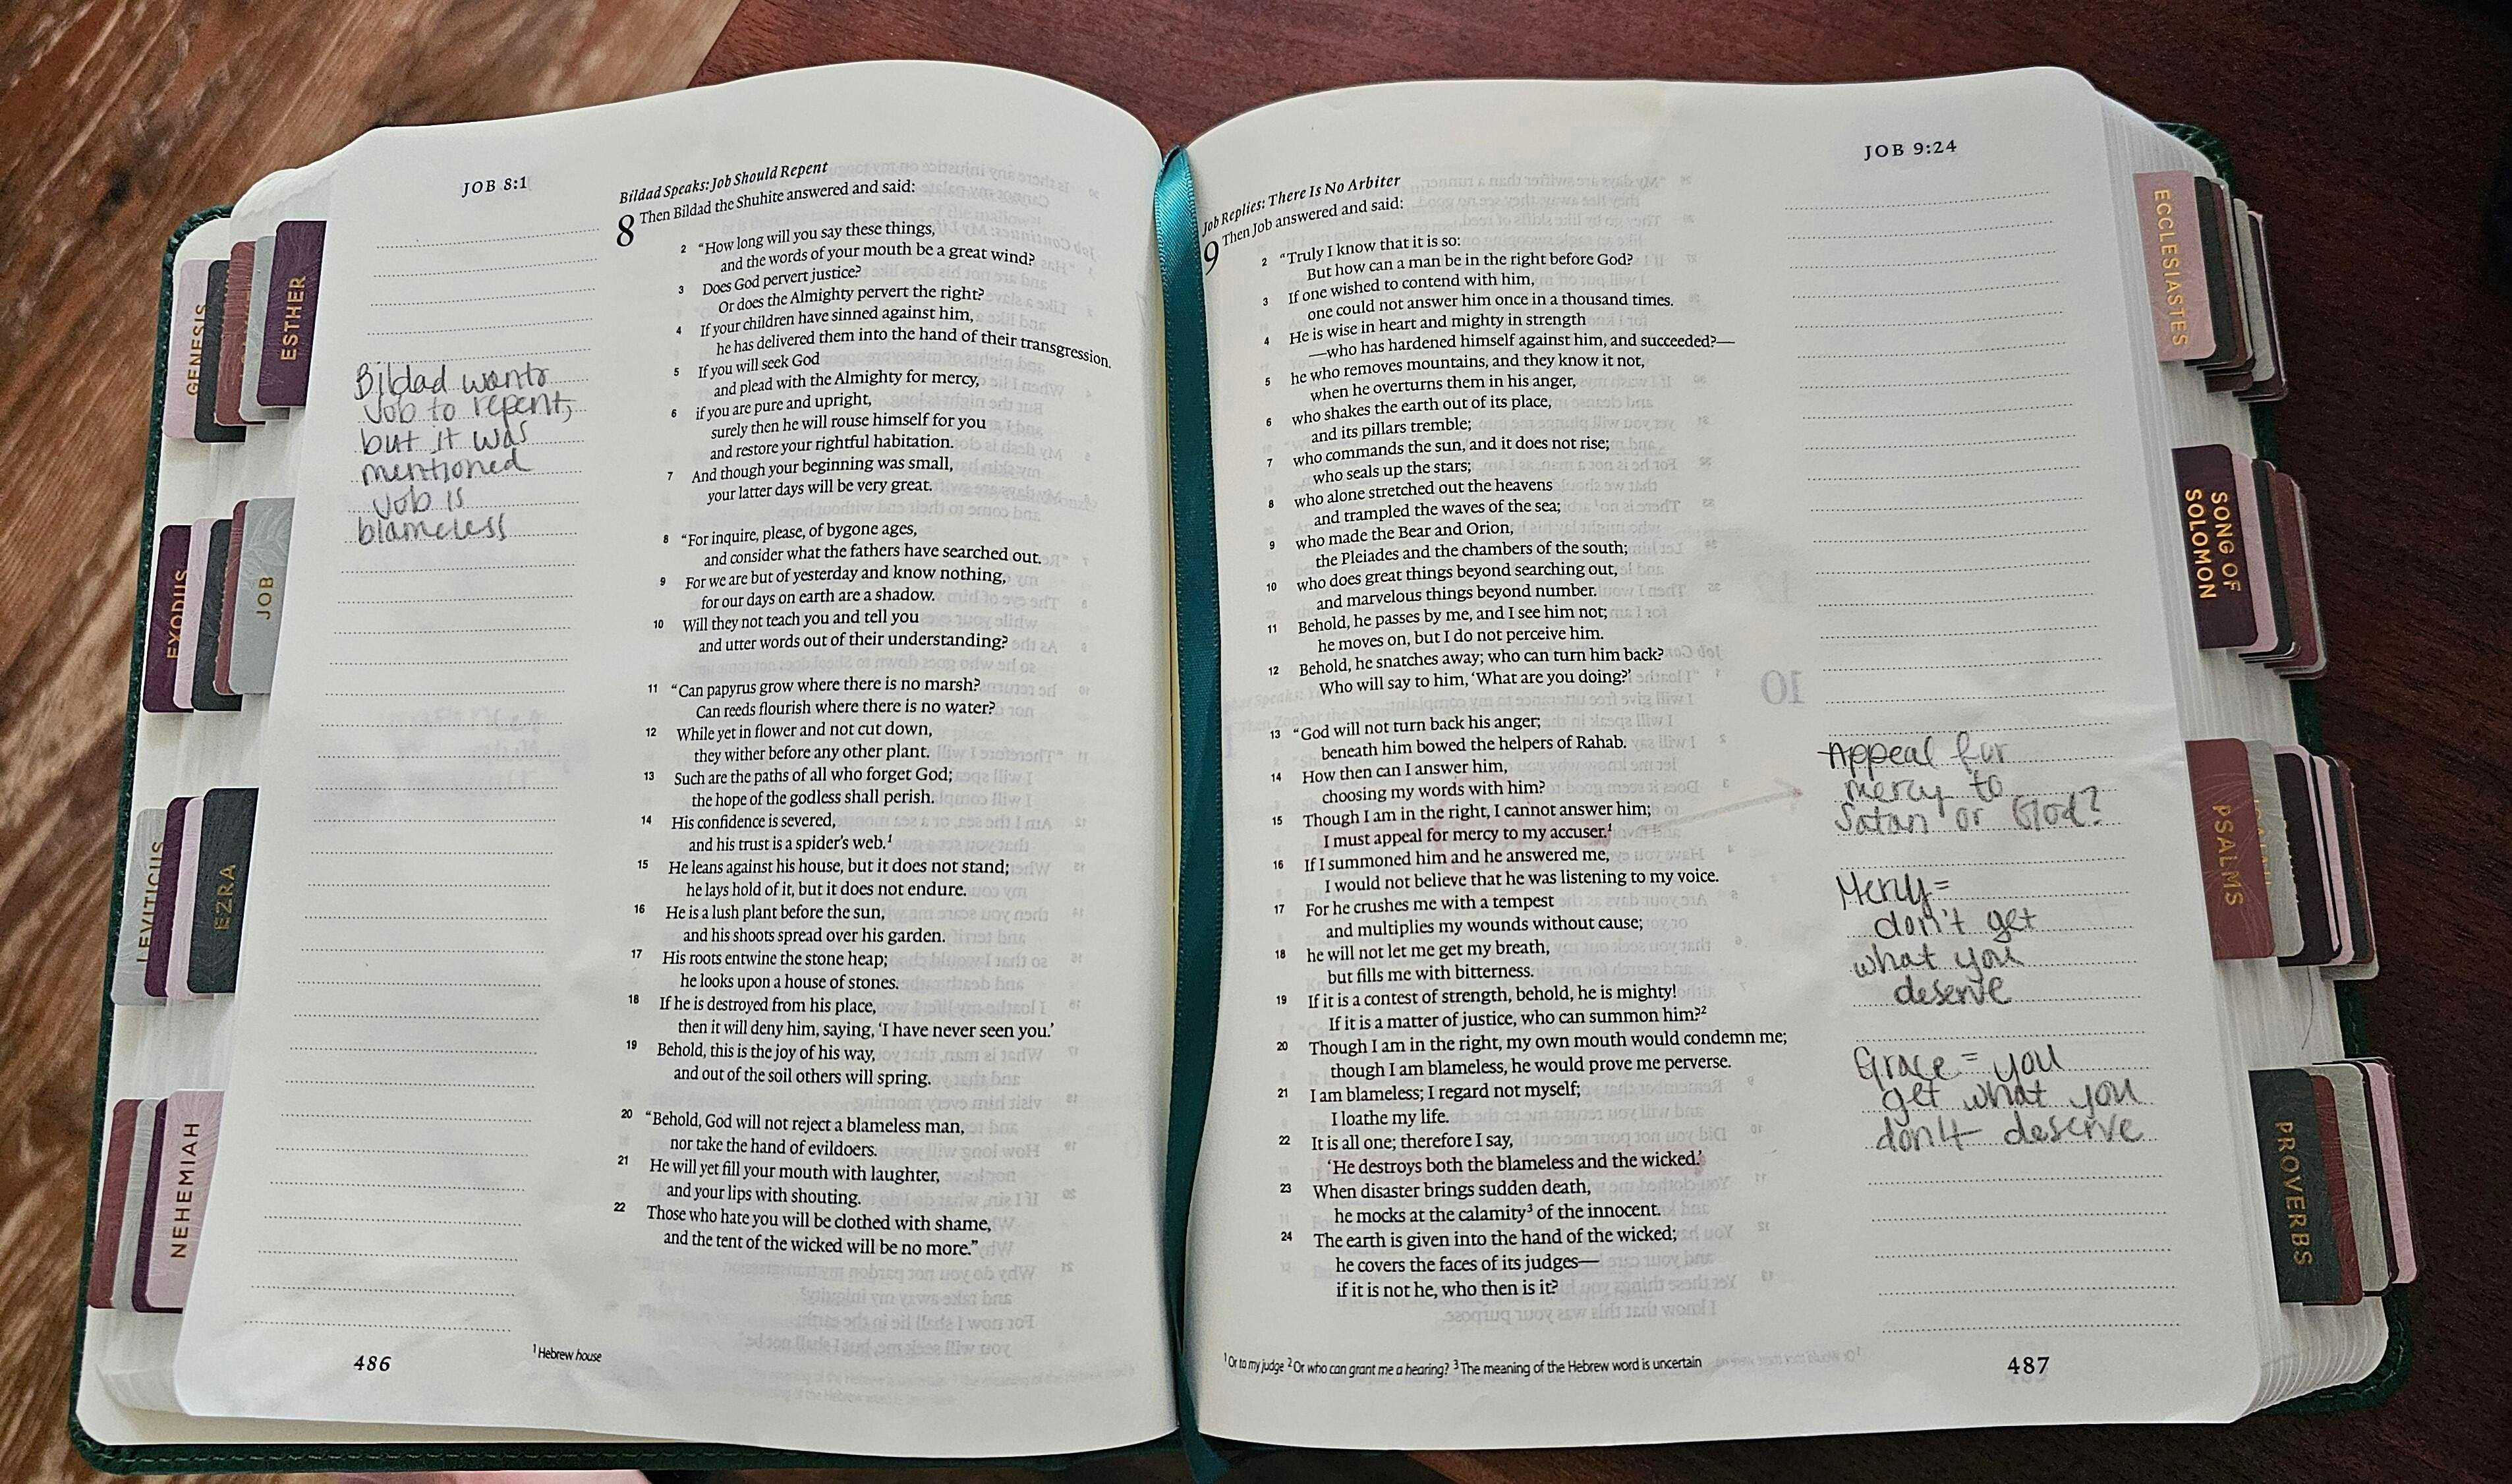 JOB 8:1
Bildad wants
Job to repent,
but it was
mentioned
Job is
blameless
Bildad Speaks: Job Should Repent
8 Then Bildad the Shuhite answered and said:
2 “How long will you say these things,
and the words of your mouth be a great wind?
3 Does God pervert justice?
Or does the Almighty pervert the right?
4 If your children have sinned against him,
he has delivered them into the hand of their transgression.
5 If you will seek God
and plead with the Almighty for mercy,
6 if you are pure and upright,
surely then he will rouse himself for you
and restore your rightful habitation.
7 And though your beginning was small,
your latter days will be very great.
8 “For inquire, please, of bygone ages,
and consider what the fathers have searched out.
9 For we are but of yesterday and know nothing,
for our days on earth are a shadow.
10 Will they not teach you and tell you
and utter words out of their understanding?
11 “Can papyrus grow where there is no marsh?
Can reeds flourish where there is no water?
12 While yet in flower and not cut down,
they wither before any other plant.
13 Such are the paths of all who forget God;
the hope of the godless shall perish.
14 His confidence is severed,
and his trust is a spider’s web.¹
15 He leans against his house, but it does not stand;
he lays hold of it, but it does not endure.
16 He is a lush plant before the sun,
and his shoots spread over his garden.
17 His roots entwine the stone heap;
he looks upon a house of stones.
18 If he is destroyed from his place,
then it will deny him, saying, ‘I have never seen you.’
19 Behold, this is the joy of his way,
and out of the soil others will spring.
20 “Behold, God will not reject a blameless man,
nor take the hand of evildoers.
21 He will yet fill your mouth with laughter,
and your lips with shouting.
22 Those who hate you will be clothed with shame,
and the tent of the wicked will be no more.”
486
¹ Hebrew house
JOB 9:24
Job Replies: There Is No Arbiter
9 Then Job answered and said:
2 “Truly I know that it is so:
But how can a man be in the right before God?
3 If one wished to contend with him,
one could not answer him once in a thousand times.
4 He is wise in heart and mighty in strength
—who has hardened himself against him, and succeeded?—
5 he who removes mountains, and they know it not,
when he overturns them in his anger,
6 who shakes the earth out of its place,
and its pillars tremble;
7 who commands the sun, and it does not rise;
who seals up the stars;
8 who alone stretched out the heavens
and trampled the waves of the sea;
9 who made the Bear and Orion,
the Pleiades and the chambers of the south;
10 who does great things beyond searching out,
and marvelous things beyond number.
11 Behold, he passes by me, and I see him not;
he moves on, but I do not perceive him.
12 Behold, he snatches away; who can turn him back?
Who will say to him, ‘What are you doing?’
13 “God will not turn back his anger;
beneath him bowed the helpers of Rahab.
14 How then can I answer him,
choosing my words with him?
15 Though I am in the right, I cannot answer him;
I must appeal for mercy to my accuser.¹
16 If I summoned him and he answered me,
I would not believe that he was listening to my voice.
17 For he crushes me with a tempest
and multiplies my wounds without cause;
18 he will not let me get my breath,
but fills me with bitterness.
19 If it is a contest of strength, behold, he is mighty!
If it is a matter of justice, who can summon him?²
20 Though I am in the right, my own mouth would condemn me;
though I am blameless, he would prove me perverse.
21 I am blameless; I regard not myself;
I loathe my life.
22 It is all one; therefore I say,
‘He destroys both the blameless and the wicked.’
23 When disaster brings sudden death,
he mocks at the calamity³ of the innocent.
24 The earth is given into the hand of the wicked;
he covers the faces of its judges—
if it is not he, who then is it?
Appeal for
mercy to
Satan or God?
Mercy =
don't get
what you
deserve
Grace = you
get what you
don't deserve
¹ Or to my judge ² Or who can grant me a hearing? ³ The meaning of the Hebrew word is uncertain
487
GENESIS
ESTHER
EXODUS
JOB
LEVITICUS
EZRA
NEHEMIAH
ECCLESIASTES
SONG OF
SOLOMON
PSALMS
PROVERBS